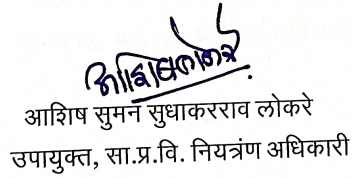 आशिष सुमन सुधाकरराव लोकरे
उपायुक्त, सा.प्र.वि. नियत्रंण अधिकारी